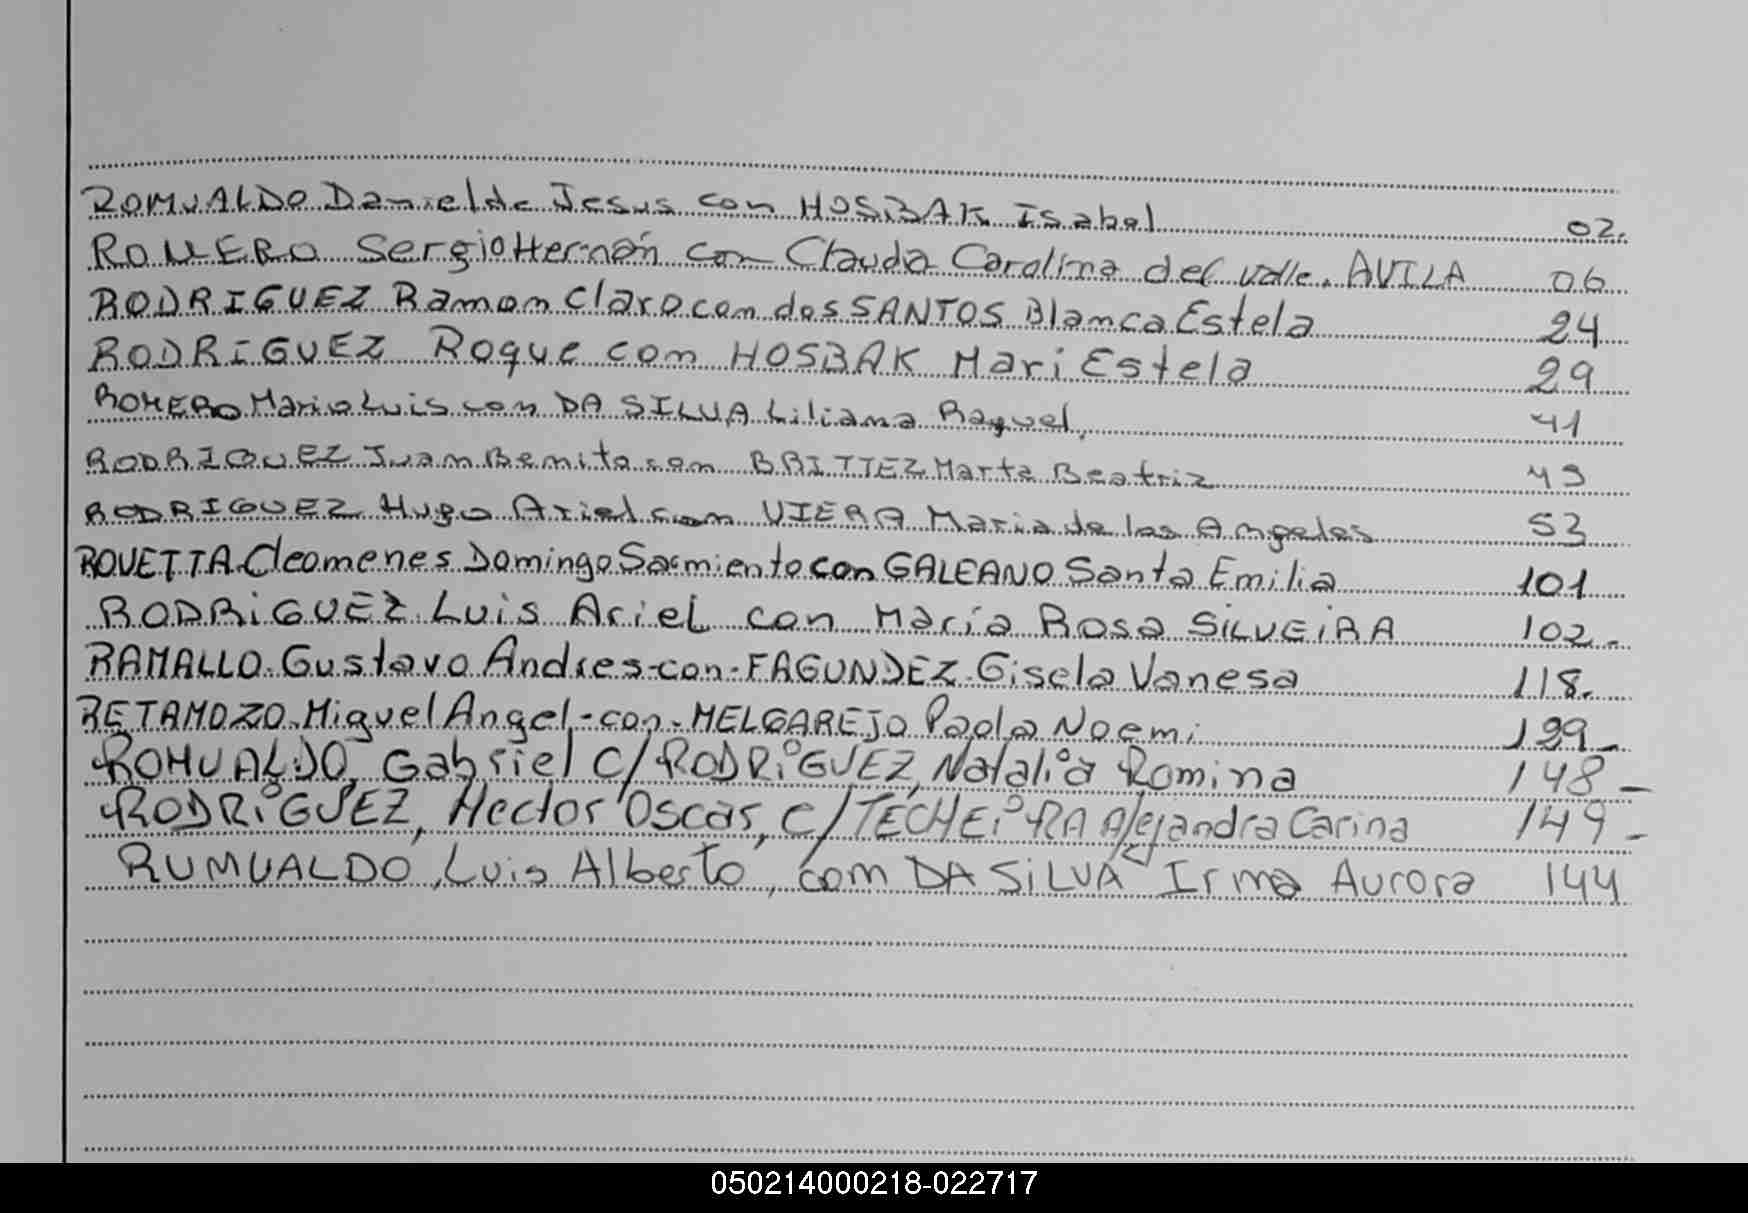 ROMUALDO Daniel de Jesus con HOSBAK Isabel 02.
ROMERO Sergio Hernán con Clauda Carolina del valle. AVILA 06
RODRIGUEZ Ramon Claro con dos SANTOS Blanca Estela 24
RODRIGUEZ Roque con HOSBAK Mari Estela 29
ROMERO Mario Luis con DA SILVA Liliana Raquel. 41
RODRIGUEZ Juan Benito con BRITTEZ Marta Beatriz 43
RODRIGUEZ Hugo Ariel con VIERA Maria de los Angeles 53
ROVETTA Cleomenes Domingo Sarmiento con GALEANO Santa Emilia 101
RODRiGUEZ Luis Ariel con María Rosa SiLVEiRA 102.-
RAMALLO. Gustavo Andres-con-FAGUNDEZ. Gisela Vanesa 118.
RETAMOZO. Miguel Angel-con-MELGAREJO Paola Noemi 129-
ROMUALDO, Gabriel C/ RODRiGUEZ, Natalia Romina 148-
RODRiGUEZ, Hector Oscar, C/ TECHEiRA Alejandra Carina 149-
RUMUALDO, Luis Alberto, com DA SiLVA Irma Aurora 144
050214000218-022717